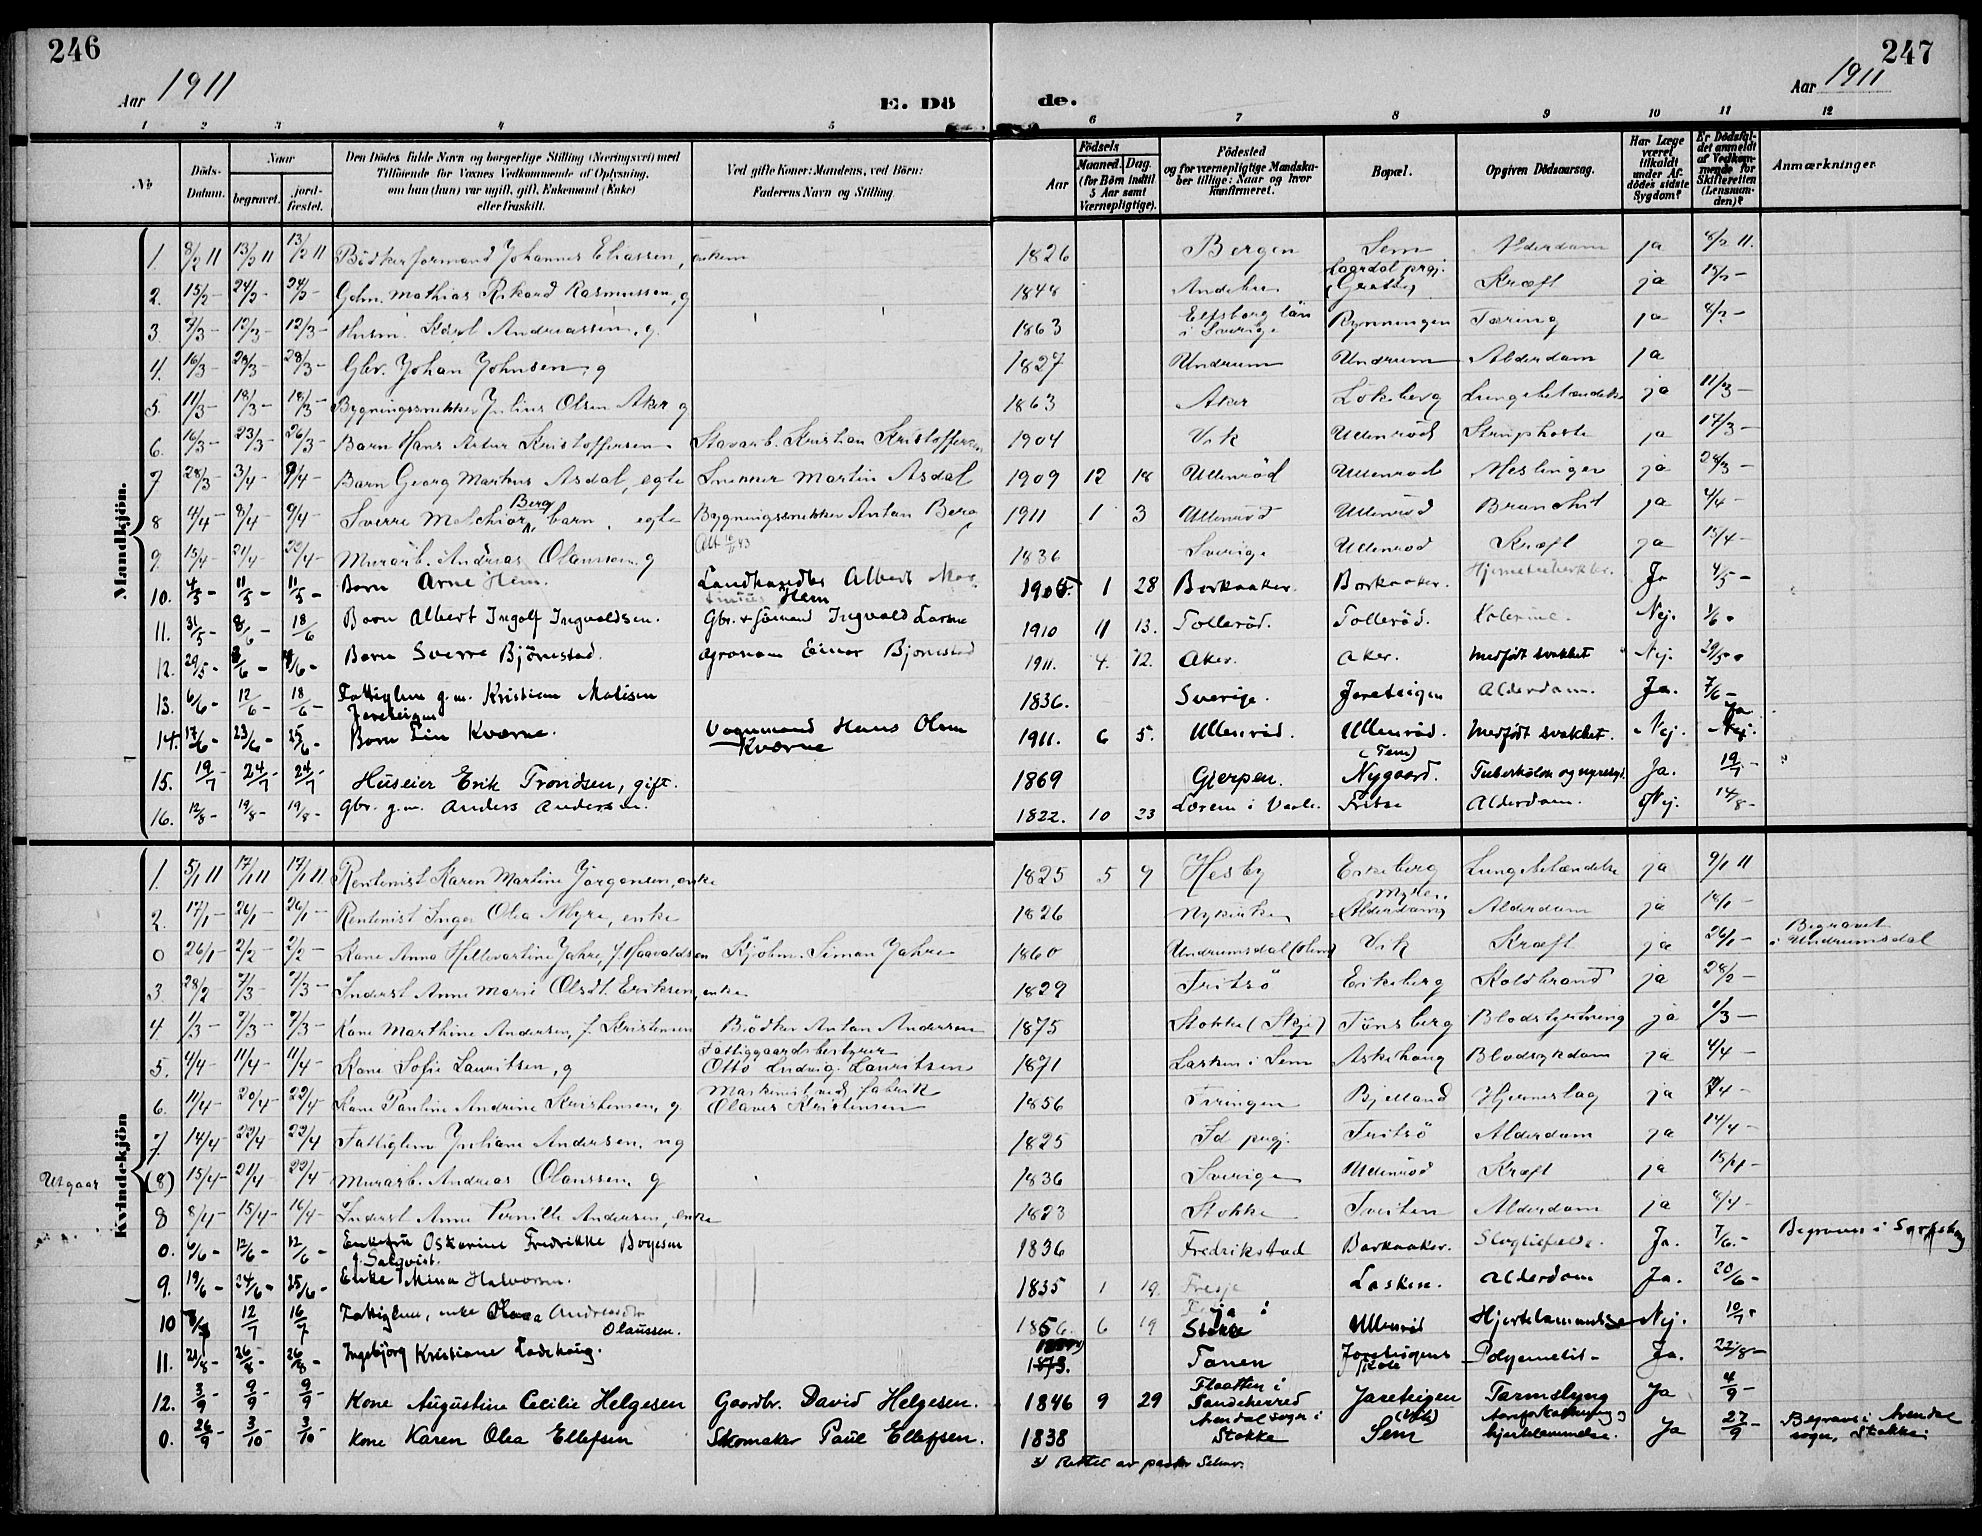 246
247
Aar 1911
E. Dö
de.
Aar 1911
1 2 3 4 5 6 7 8 9 10 11 12
No
Döds-Datum.
Naar
begravet.
jord-fæstet.
Den Dödes fulde Navn og borgerlige Stilling (Næringsvei) med
Tilföiende for Voxnes Vedkommende af Oplysning,
om han (hun) var ugift, gift, Enkemand (Enke)
eller fraskilt.
Ved gifte Koner: Mandens, ved Börn:
Faderens Navn og Stilling.
Födsels
Aar
Maaned. Dag.
(for Börn indtil
5 Aar samt
Værnepligtige).
Födested
og for værnepligtige Mandska-
ber tillige: Naar og hvor
konfirmeret.
Bopæl.
Opgiven Dödsaarsag.
Har Læge
været
tilkaldt
under Af-
dödes sidste
Sygdom?
Er Dödsfal-
det anmeldt
af Vedkom-
mende for
Skifteretten
(Lensman-
den)?
Anmærkninger
Mandkjön.
1. 8/2 11 13/2 11 13/2 11 Bödkerformand Johannes Eliassen, enkem 1826 Bergen Sem Alderdom ja 8/2 11.
2. 15/2 - 24/2 - 24/2 - Gdm. Mathias Rikard Rasmussen, g 1848 Andebu Laardal prgj. Kræft ja 15/2 -
3 7/3 - 12/3 - 12/3 - Husm. Karl Andreassen, g. 1863 Elfsborg län i Sverige Rynningen Tæring ja 8/3 -
4. 16/3 - 28/3 - 28/3 - Gbr. Johan Johnsen, g 1827 Undrum Undrum Alderdom ja
5. 11/3 - 18/3 - 18/3 - Bygningssnekker Julius Olsen Aker g 1863 Aker Lökeberg Lungebetændelse ja 11/3 -
6. 16/3 - 23/3 - 26/3 - Barn Hans Artur Kristoffersen Kristian Kristoffersen 1904 Vik Ullenröd Struphoste ja 17/3 -
7 28/3 - 3/4 - 9/4 - Barn Georg Markus Asdal, egte Snekker Martin Asdal 1909 12 18 Ullenröd Ullenröd Meslinger ja 28/3 -
8 4/4 - 8/4 - 9/4 - Sverre Melchior Berg, barn, egte Bygningssnekker Anton Berg 1911 1 3 Ullenröd Ullenröd Brandsit ja 4/4 -
9. 15/4 - 21/4 - 22/4 - Murarb. Andreas Olaussen, g 1836 Sverige Ullenröd Kræft ja 15/4 -
10. 4/5 - 11/5 - 11/5 - Barn Arne Hem. Landhandler Albert Hem 1905. 1 28 Borkaaker. Borkaaker. Ja 4/5 -
11. 31/5 - 8/6 - 18/6 Barn Albert Ingolf Ingvaldsen. Gbr. + sömand Ingvald Larsen 1910 11 13. Tolleröd. Tolleröd. Kolerine. Nej. 1/6 -
12. 29/5 - 3/6 - 4/6 - Barn Sverre Björnstad. Agronom Einar Björnstad 1911. 4. 12. Aker. Aker. Medfödt svakhet Nej. 29/5 -
13. 6/6 - 12/6 - 18/6 - Fattiglem g.m. Kristian Matisen Jareteigen 1836. Sverige. Jareteigen Alderdom. Ja. 7/6 -
14. 17/6 - 23/6 - 25/6 - Barn Kværne. Vognmand Hans Olsen Kværne 1911. 6 5. Ullenröd. Ullenröd. Medfödt svakhet. Nej. Ja.
15. 19/7 - 24/7 - 24/7 - Huseier Erik Trondsen, gift. 1869 Gjerpen. Nygaard. (Sem) Ja. 19/7 -
16. 12/8 - 19/8 - 19/8 - Gbr. g.m. Anders Andersen. 1822. 10 23 Fritsø Alderdom. Nej. 14/8 -
Kvindekjön
1. 5/1 11 17/1 11 17/1 11 Rentenist Karen Martine Jörgensen, enke 1825 5 9 Hesby Eikeberg Lungebetændelse ja 9/1 11
2. 17/1 - 26/1 - 26/1 - Rentenist Inger Olea Myre, enke 1826 Nykirke Myre Alderdom ja 18/1 -
0 26/1 - 2/2 - 2/2 - Kone Anna Hellevartine Jahre, f. Haavaldsen Kjöbm. Simon Jahre 1860 Undrumsdal Vik Kræft ja 26/1 - Begravet i Undrumsdal
3. 28/2 - 7/3 - 7/3 - Inderst Anne Marie Olsdt. Eriksen, enke 1829 Fritsö Eikeberg Koldbrand ja 28/2 -
4. 1/3 - 7/3 - 7/3 - Kone Marthine Andersen, f. Kristensen Bödker Anton Andersen 1875 Stokke (Skje) Tönsberg Blodstyrtning ja 1/3 -
5. 4/4 - 11/4 - 11/4 - Kone Sofie Lauritsen, g Fattiggaardsbestyrer Otto Ludvig Lauritsen 1871 Lasken i Sem Askehaug Blodsygdom ja 4/4 -
6. 11/4 - 20/4 - 22/4 Kone Pauline Andrine Kristensen, g Maskinist ved fabrik Olaves Kristensen 1856 Firingen Bjelland Hjerneslag ja
7 14/4 - 22/4 - 22/4 Fattiglem Juliane Andersen, ug 1825 Id prgj. Fritsö Alderdom ja 14/4 -
Utgaar (8) 15/4 - 21/4 - 22/4 - Murarb. Andreas Olaussen, g 1836 Sverige Ullenröd Kræft ja 15/4 -
8 8/4 - 15/4 - 16/4 - Inderst Anne Pernille Andersen, enke 1823 Stokke Tveiten Alderdom ja 8/4 -
0. 6/6 - 12/6 - 12/6 - Enkefru Oskarine Fredrikke Bogesen f. Salqvist. 1836 Fredrikstad Borkaaker. Slagtilfælde. Ja. 7/6 - Begraves i Sarpsborg
9. 19/6 - 24/6 - 25/6 - Enke Mina Halvorsen. 1835 1 19. Fresje Lasken. Alderdom Ja. 20/6 -
10 12/7 16/7 Fattiglem, enke Andreasdtr Olaussen. 1856. 6 19 Stokke Ullenröd Hjertelammelse Nej. 10/7 -
11. 21/8 - 26/8 - 26/8 - Ingebjörg Kristiane Ladehaug. 1873. Tanen Jareteigens skole Ja. 22/8 -
12. 3/9 - 9/9 - 9/9 - Kone Augustine Cecilie Helgesen Gaardbr. David Helgesen. 1846 9 29 Flaatten i Sandeherred Jareteigen Tarmslyng Ja 4/9 -
0. 26/9 - 3/10 - 3/10 - Kone Karen Olea Ellefsen Skomaker Paul Ellefsen. 1838 Arendal sogn i Stokke Sem (Vik) hjertelammelse. Ja 27/9 Begraves i Arendal sogn, Stokke.